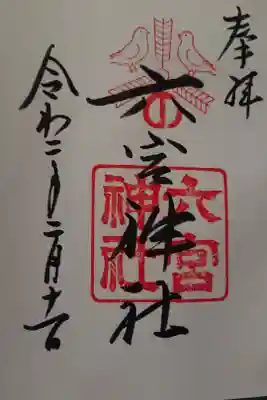 奉拝
六宮神社
六宮
神社
令和二年二月十一日